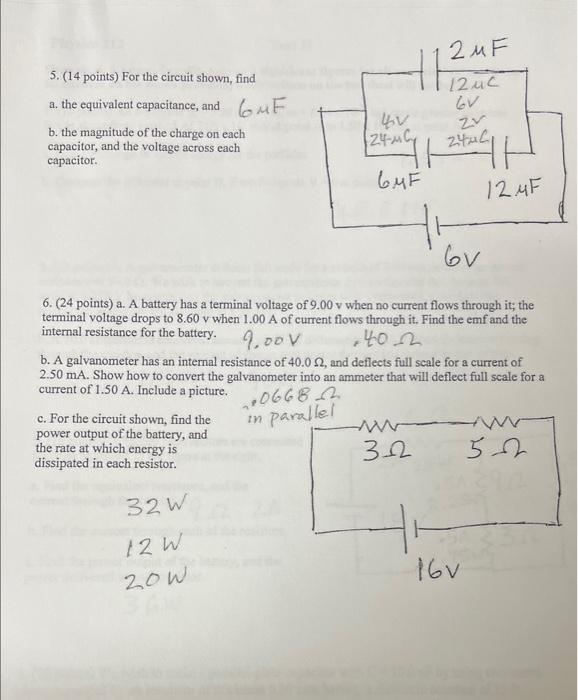 5. (14 points) For the circuit shown, find
a. the equivalent capacitance, and 6μF
b. the magnitude of the charge on each
capacitor, and the voltage across each
capacitor.
2μF
12μC
6V
4V
24μC
2V
24μC
6μF
12μF
6V
6. (24 points) a. A battery has a terminal voltage of 9.00 v when no current flows through it; the
terminal voltage drops to 8.60 v when 1.00 A of current flows through it. Find the emf and the
internal resistance for the battery. 9.00V .40Ω
b. A galvanometer has an internal resistance of 40.0 Ω, and deflects full scale for a current of
2.50 mA. Show how to convert the galvanometer into an ammeter that will deflect full scale for a
current of 1.50 A. Include a picture. .0668Ω
in parallel
c. For the circuit shown, find the
power output of the battery, and
the rate at which energy is
dissipated in each resistor.
3Ω 5Ω
16V
32W
12W
20W